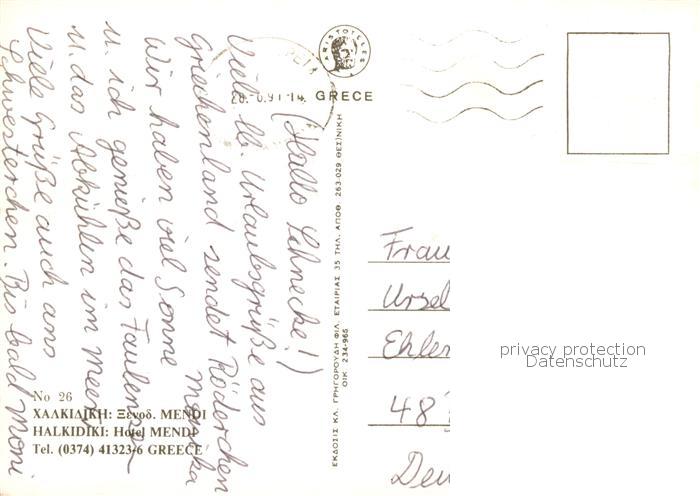 (Hallo Schnecke!)
Viele lb. Urlaubsgrüße aus
Griechenland sendet Röderchen
Monika
Wir haben viel Sonne
u. ich genieße das Faulenzen
u. das Abkühlen im Meer.
Viele Grüße auch ans
Schwesterchen. Bis bald Moni
ARISTOTELES
GRECE
ΕΚΔΟΣΙΣ ΚΛ. ΓΡΗΓΟΡΟΥΔΗ ΦΙΛ. ΕΤΑΙΡΙΑΣ 35 ΤΗΛ. ΑΠΟΘ. 263-029 ΘΕΣ)ΝΙΚΗ
ΟΙΚ. 234-965
Frau
Ursel
Ehler
48
Deu
No 26
ΧΑΛΚΙΔΙΚΗ: Ξενοδ. MENDI
HALKIDIKI: Hotel MENDI
Tel. (0374) 41323-6 GREECE
privacy protection
Datenschutz